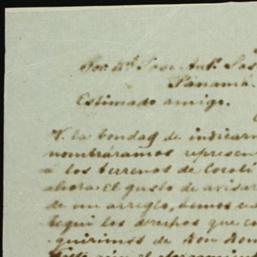 Sor. Dn. José Antº. Sas
Panamá.
Estimado amigo.
V. la bondad de indicarn
nombráramos represen
á los terrenos de Cocolí
ahora el gusto de avisar
de un arreglo, hemos
los derechos que co
quirimos de Don